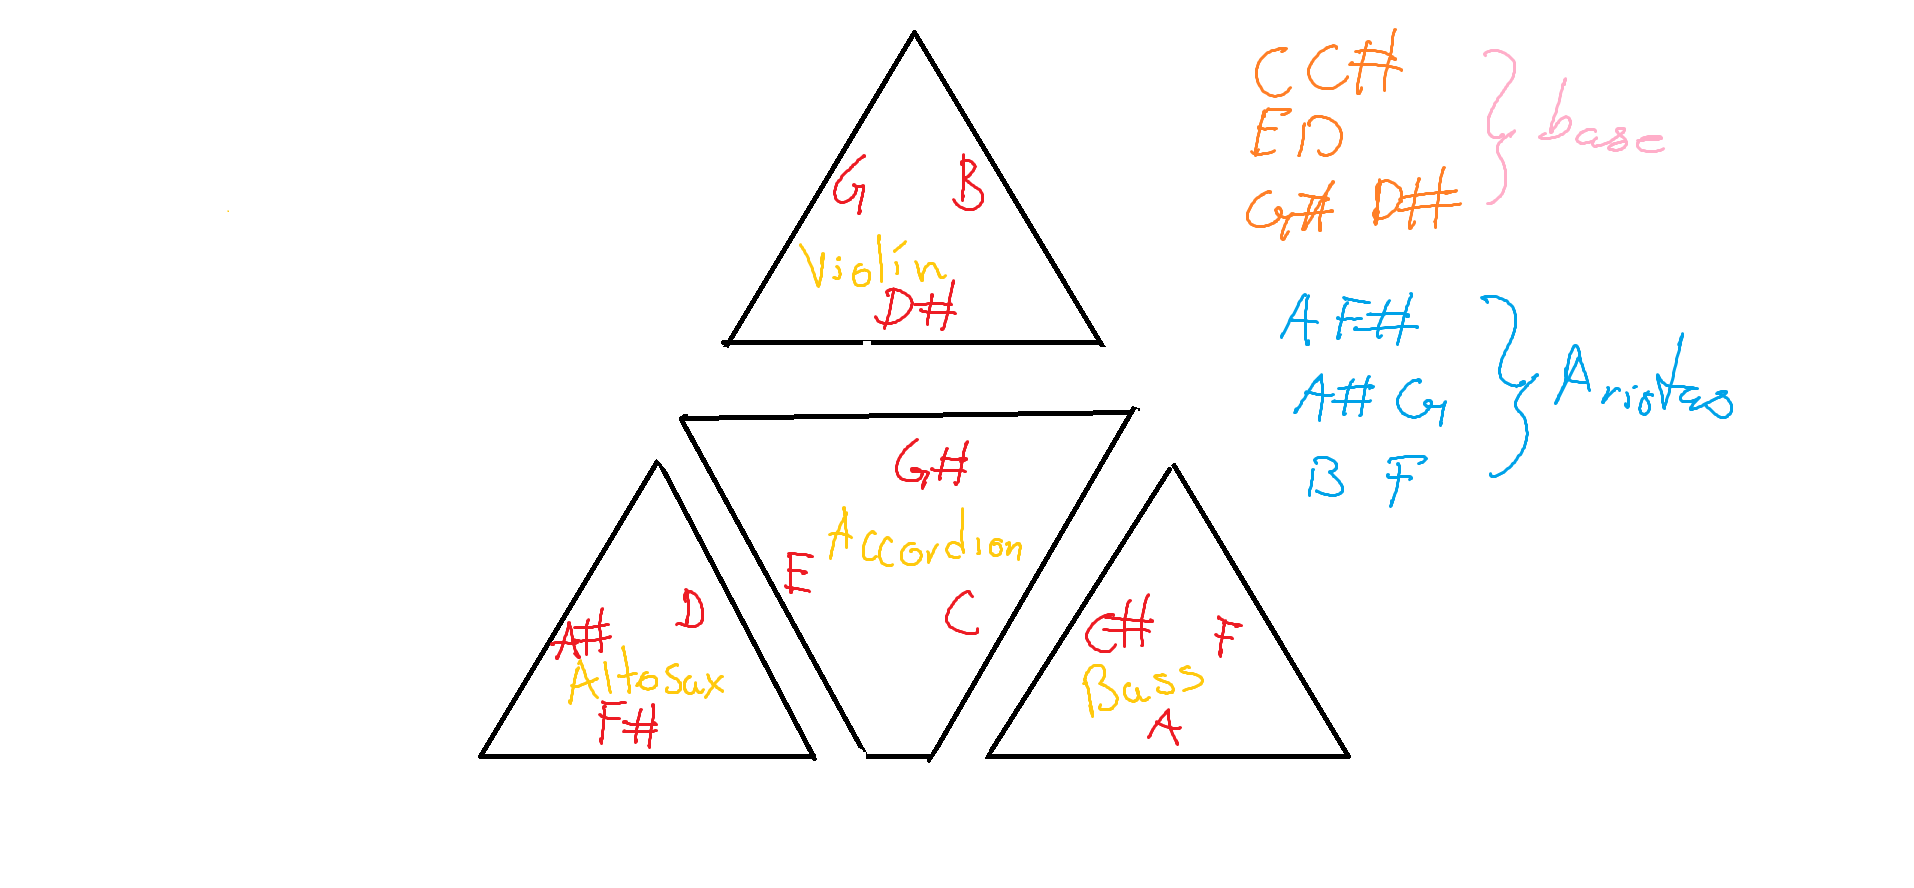 G B
Violín
D#
G#
Accordion
E
C
A# D
Altosax
F#
C# F
Bass
A
C C#
E D
G# D#
base
A F#
A# G
B F
Aristas